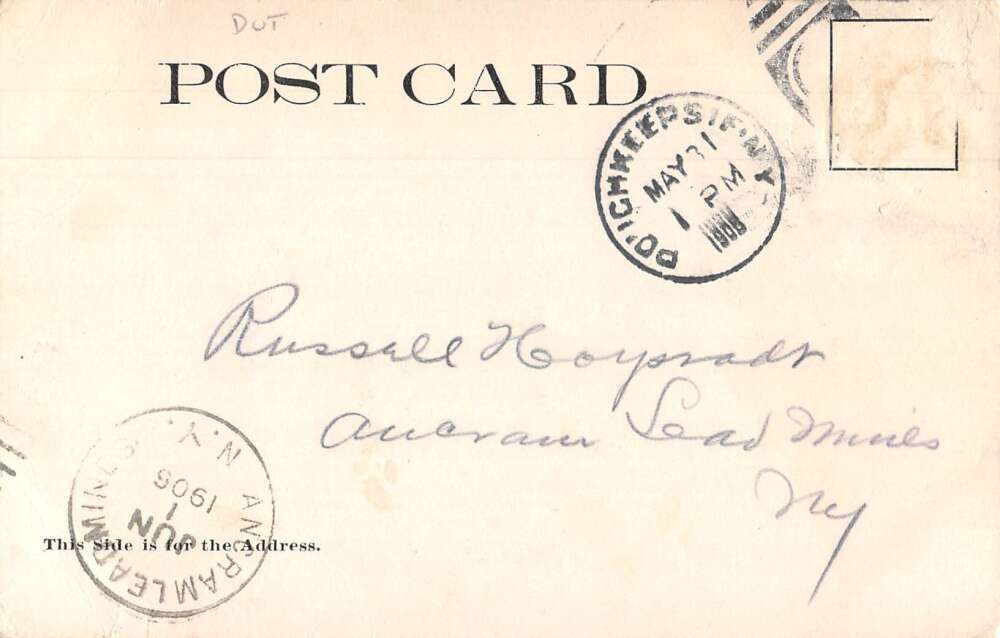 DUT
POST CARD
POUGHKEEPSIE. N.Y.
MAY 31
1 PM
1906
Russell Hoysradt
Ancram Lead Mines
Ny
ANCRAM LEAD MINES N.Y.
JUN
1
1906
This side is for the Address.